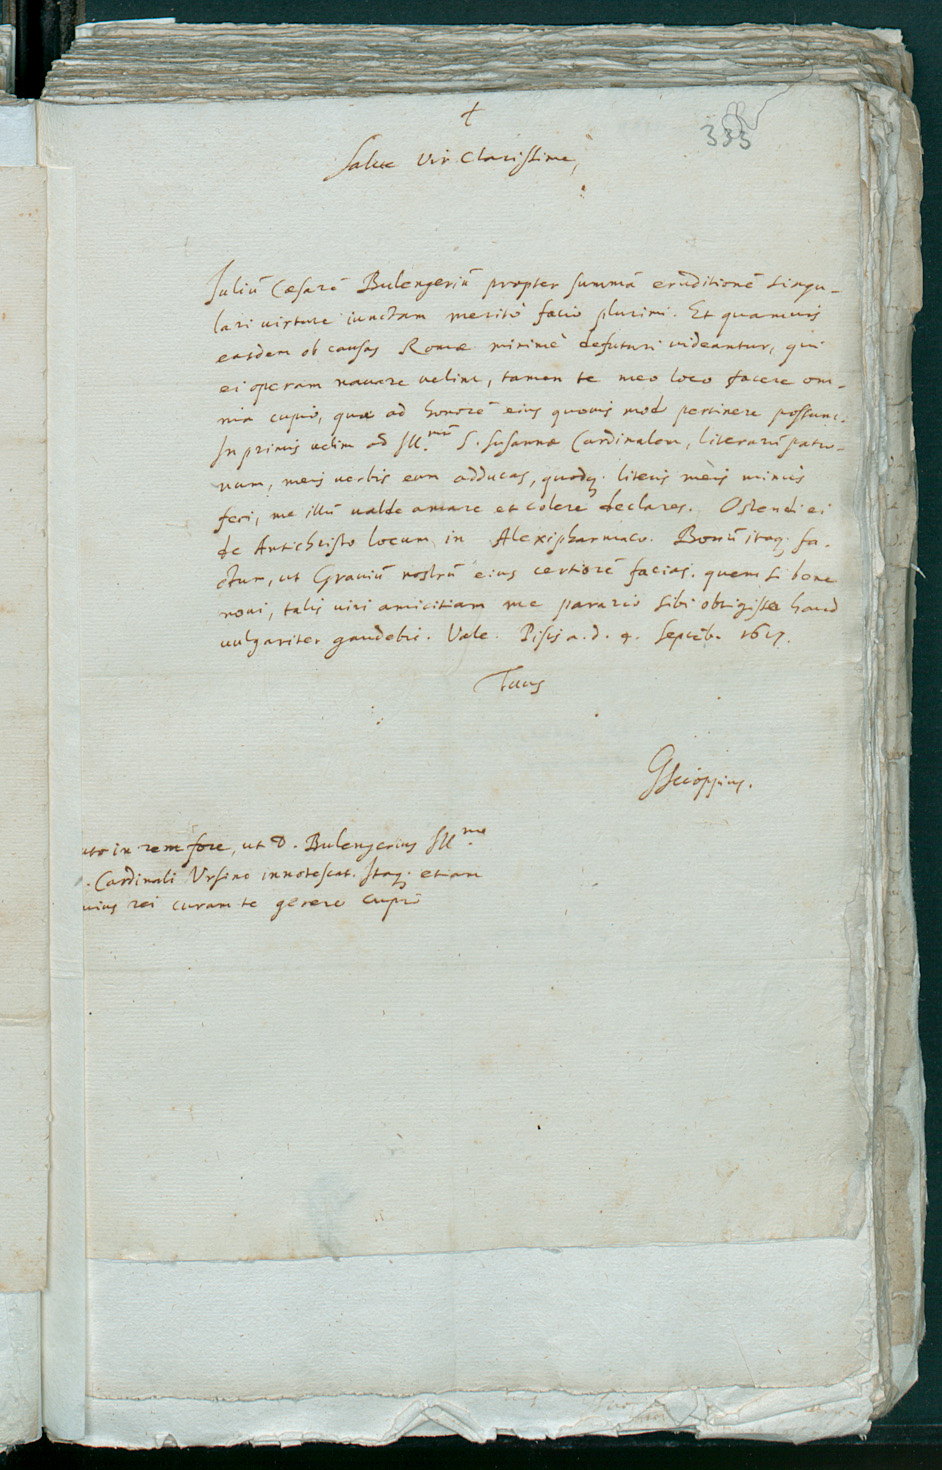 †
333
Salue Vir Clarissime,
Iuliū Cæsarē Bulengeriū propter summā eruditionē singu-
lari uirtute iunctam meritò facio plurimi. Et quamuis
easdem ob causas Romæ minimè defuturi uideantur, qui
ei operam nauare uelint, tamen te meo loco facere om-
nia cupio, quæ ad honorē eius quouis mod pertinere possunt.
Inprimis uelim ad Ill.mū S. Susannæ Cardinalem, literarū patro-
num, meis uerbis eum adducas, quodq. literis meis minus
feci, me illū ualde amare et colere declares. Ostendi ei
de Antichristo locum in Alexipharmaco. Bonū itaq. fa-
ctum, ut Grauiū nostrū eius certiorē facias. quem si bene
noui, talis uiri amicitiam me parario sibi obtigisse haud
uulgariter gaudebit. Vale. Pisis a. d. 4. Septēb. 1617.
Tuus
GScioppius.
in rem fore, ut D. Bulengerius Ill.mo
Cardinali Vrsino innotescat. Itaq. etiam
rei curam te gerere cupio